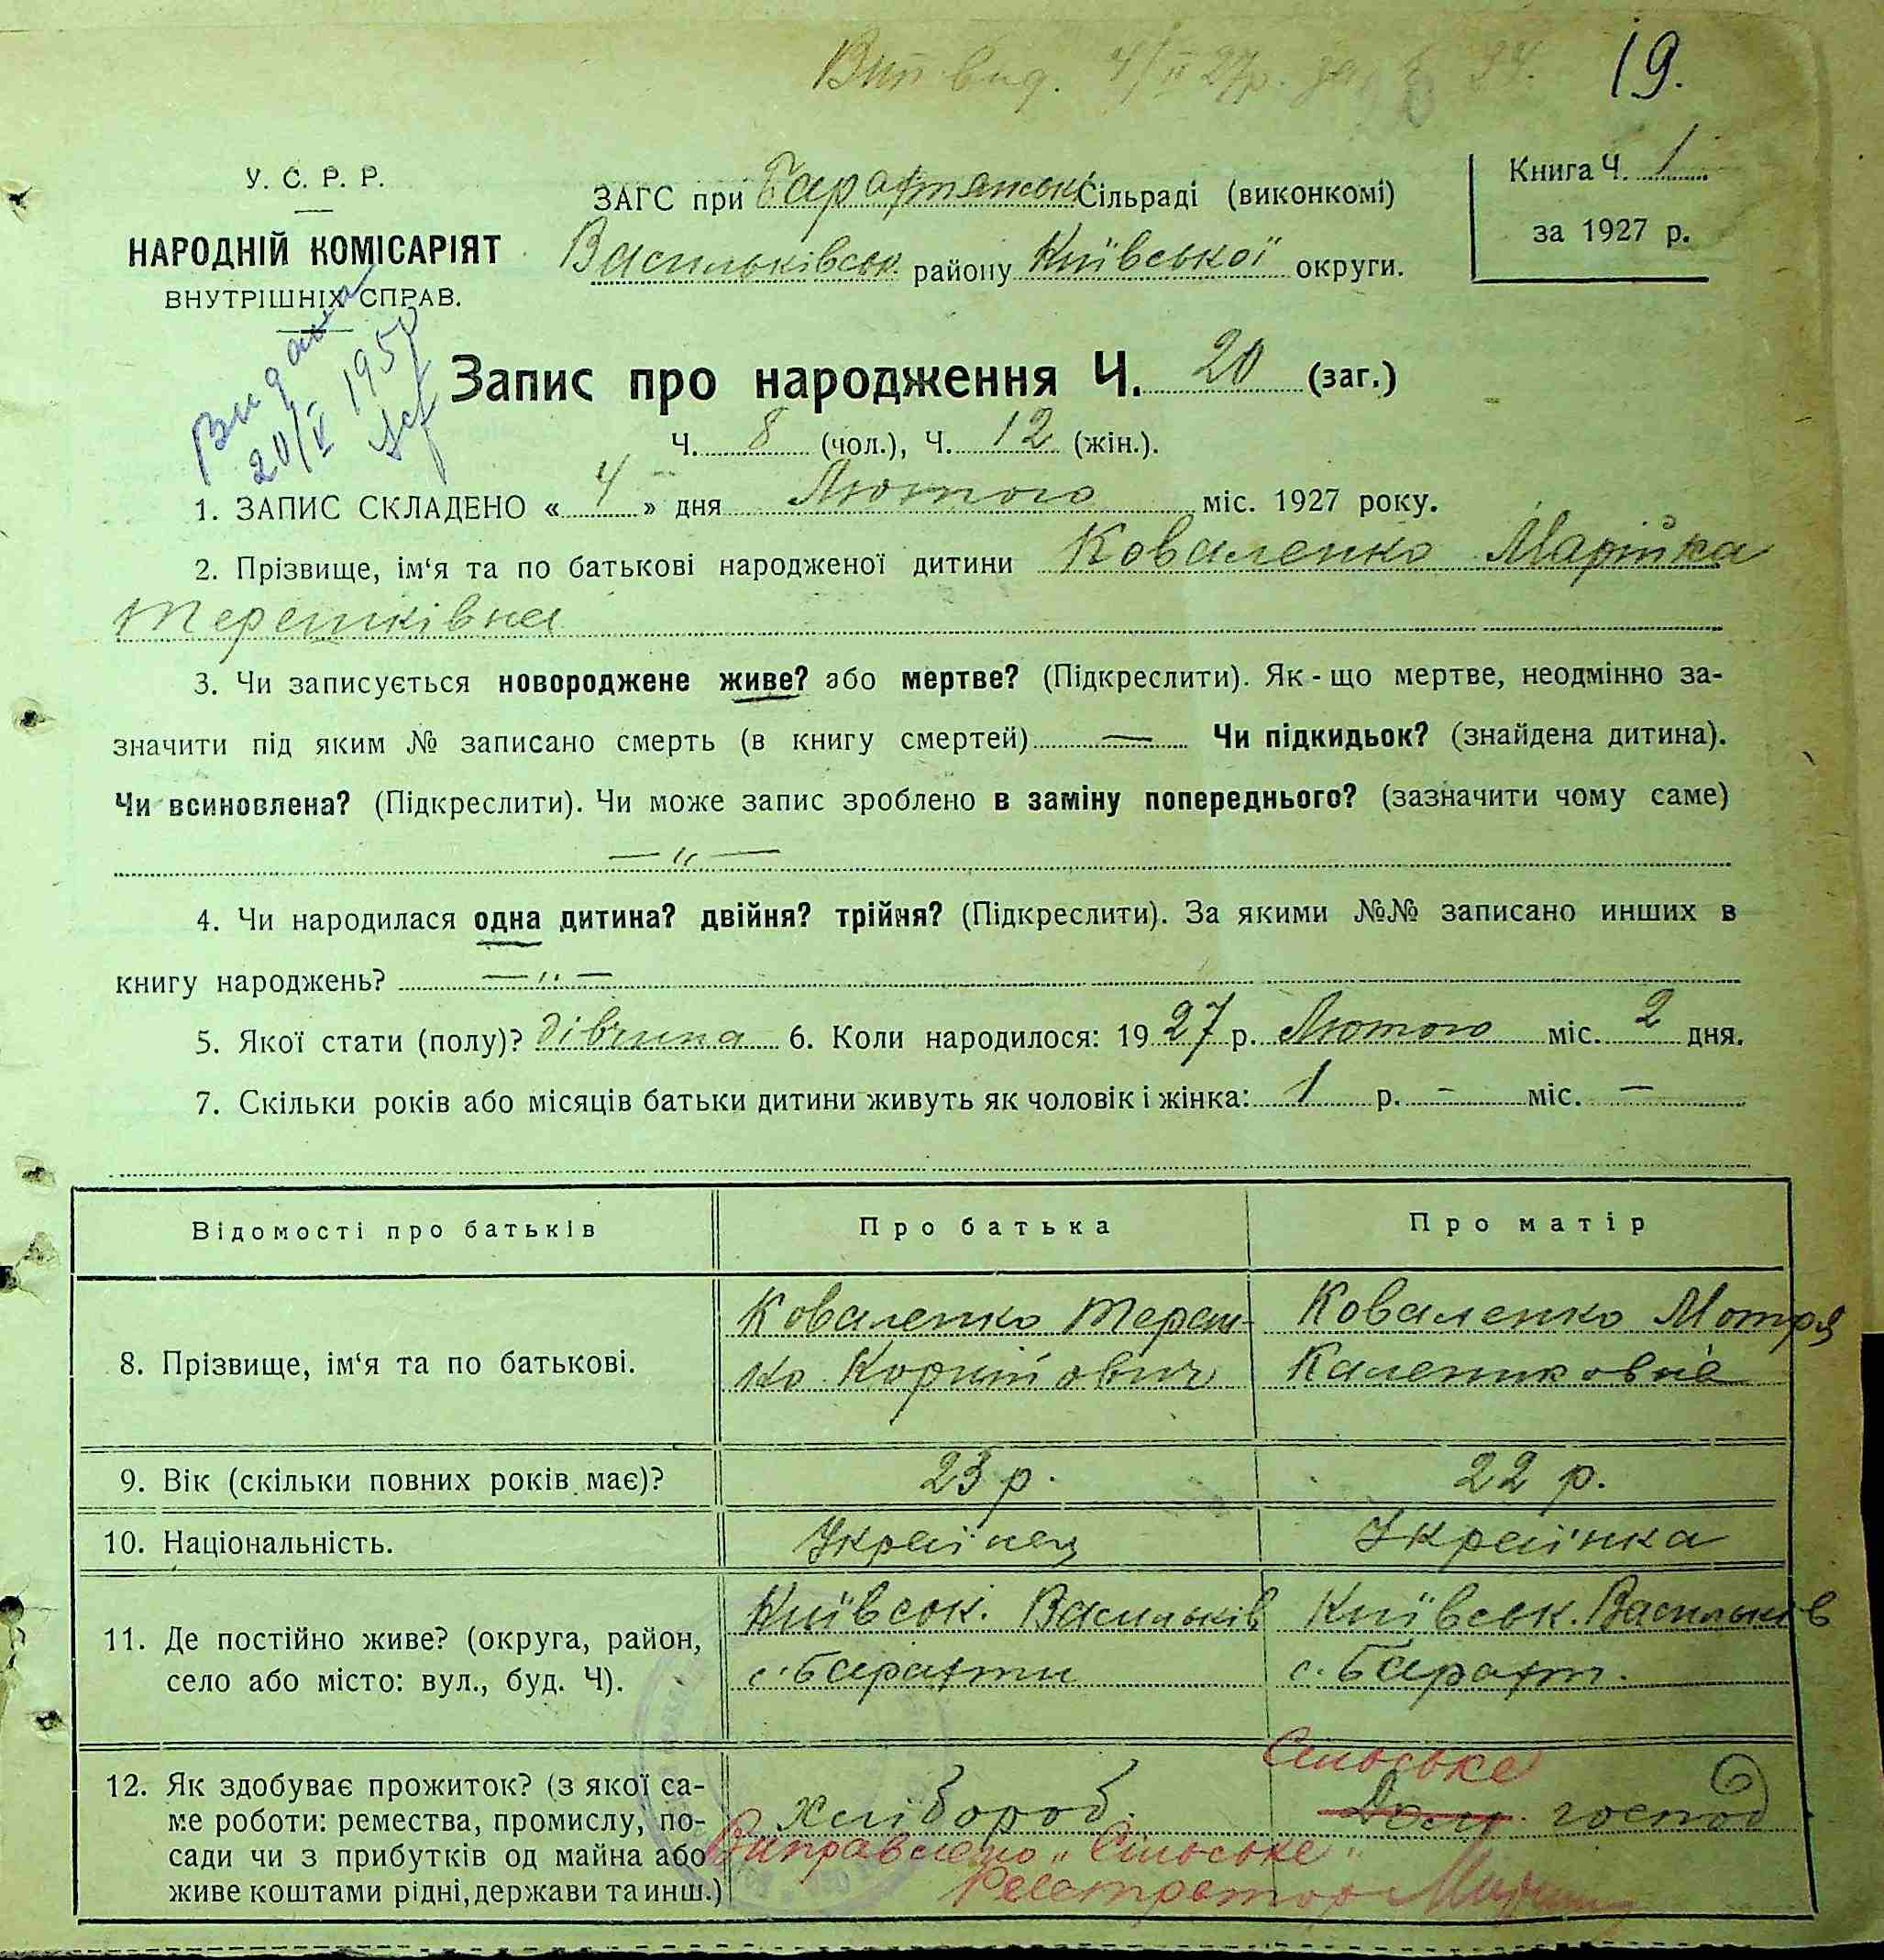 Вип вид. 4/II 27р. за № 34. 19.
У. С. Р. Р.
НАРОДНІЙ КОМІСАРІЯТ
ВНУТРІШНІХ СПРАВ.
ЗАГС при Барахтянськ Сільраді (виконкомі)
Васильківськ. району Київської округи.
Книга Ч. 1
за 1927 р.
Видан
20/V 195
Запис про народження Ч. 20 (заг.)
Ч. 8 (чол.), Ч. 12 (жін.).
1. ЗАПИС СКЛАДЕНО « 4 » дня Лютого міс. 1927 року.
2. Прізвище, ім‘я та по батькові народженої дитини Коваленко Марійка
Терешківна
3. Чи записується новороджене живе? або мертве? (Підкреслити). Як - що мертве, неодмінно за-
значити під яким № записано смерть (в книгу смертей) — Чи підкидьок? (знайдена дитина).
Чи всиновлена? (Підкреслити). Чи може запис зроблено в заміну попереднього? (зазначити чому саме)
— „ —
4. Чи народилася одна дитина? двійня? трійня? (Підкреслити). За якими №№ записано инших в
книгу народжень? — „ —
5. Якої стати (полу)? дівчина 6. Коли народилося: 1927 р. Лютого міс. 2 дня.
7. Скільки років або місяців батьки дитини живуть як чоловік і жінка: 1 р. – міс. –
Відомості про батьків Про батька Про матір
8. Прізвище, ім‘я та по батькові.
Коваленко Тереш-
ко Корнійович
Коваленко Мотря
Калениковна
9. Вік (скільки повних років має)? 23 р. 22 р.
10. Національність. Українец Українка
11. Де постійно живе? (округа, район,
село або місто: вул., буд. Ч).
Київськ. Васильків
с. Барахти
Київськ. Васильків
с. Барахт.
12. Як здобуває прожиток? (з якої са-
ме роботи: ремества, промислу, по-
сади чи з прибутків од майна або
живе коштами рідні, держави та инш.)
хлібороб.
Сільське
Дом. господ
Виправлено „Сільське"
Реєстратор